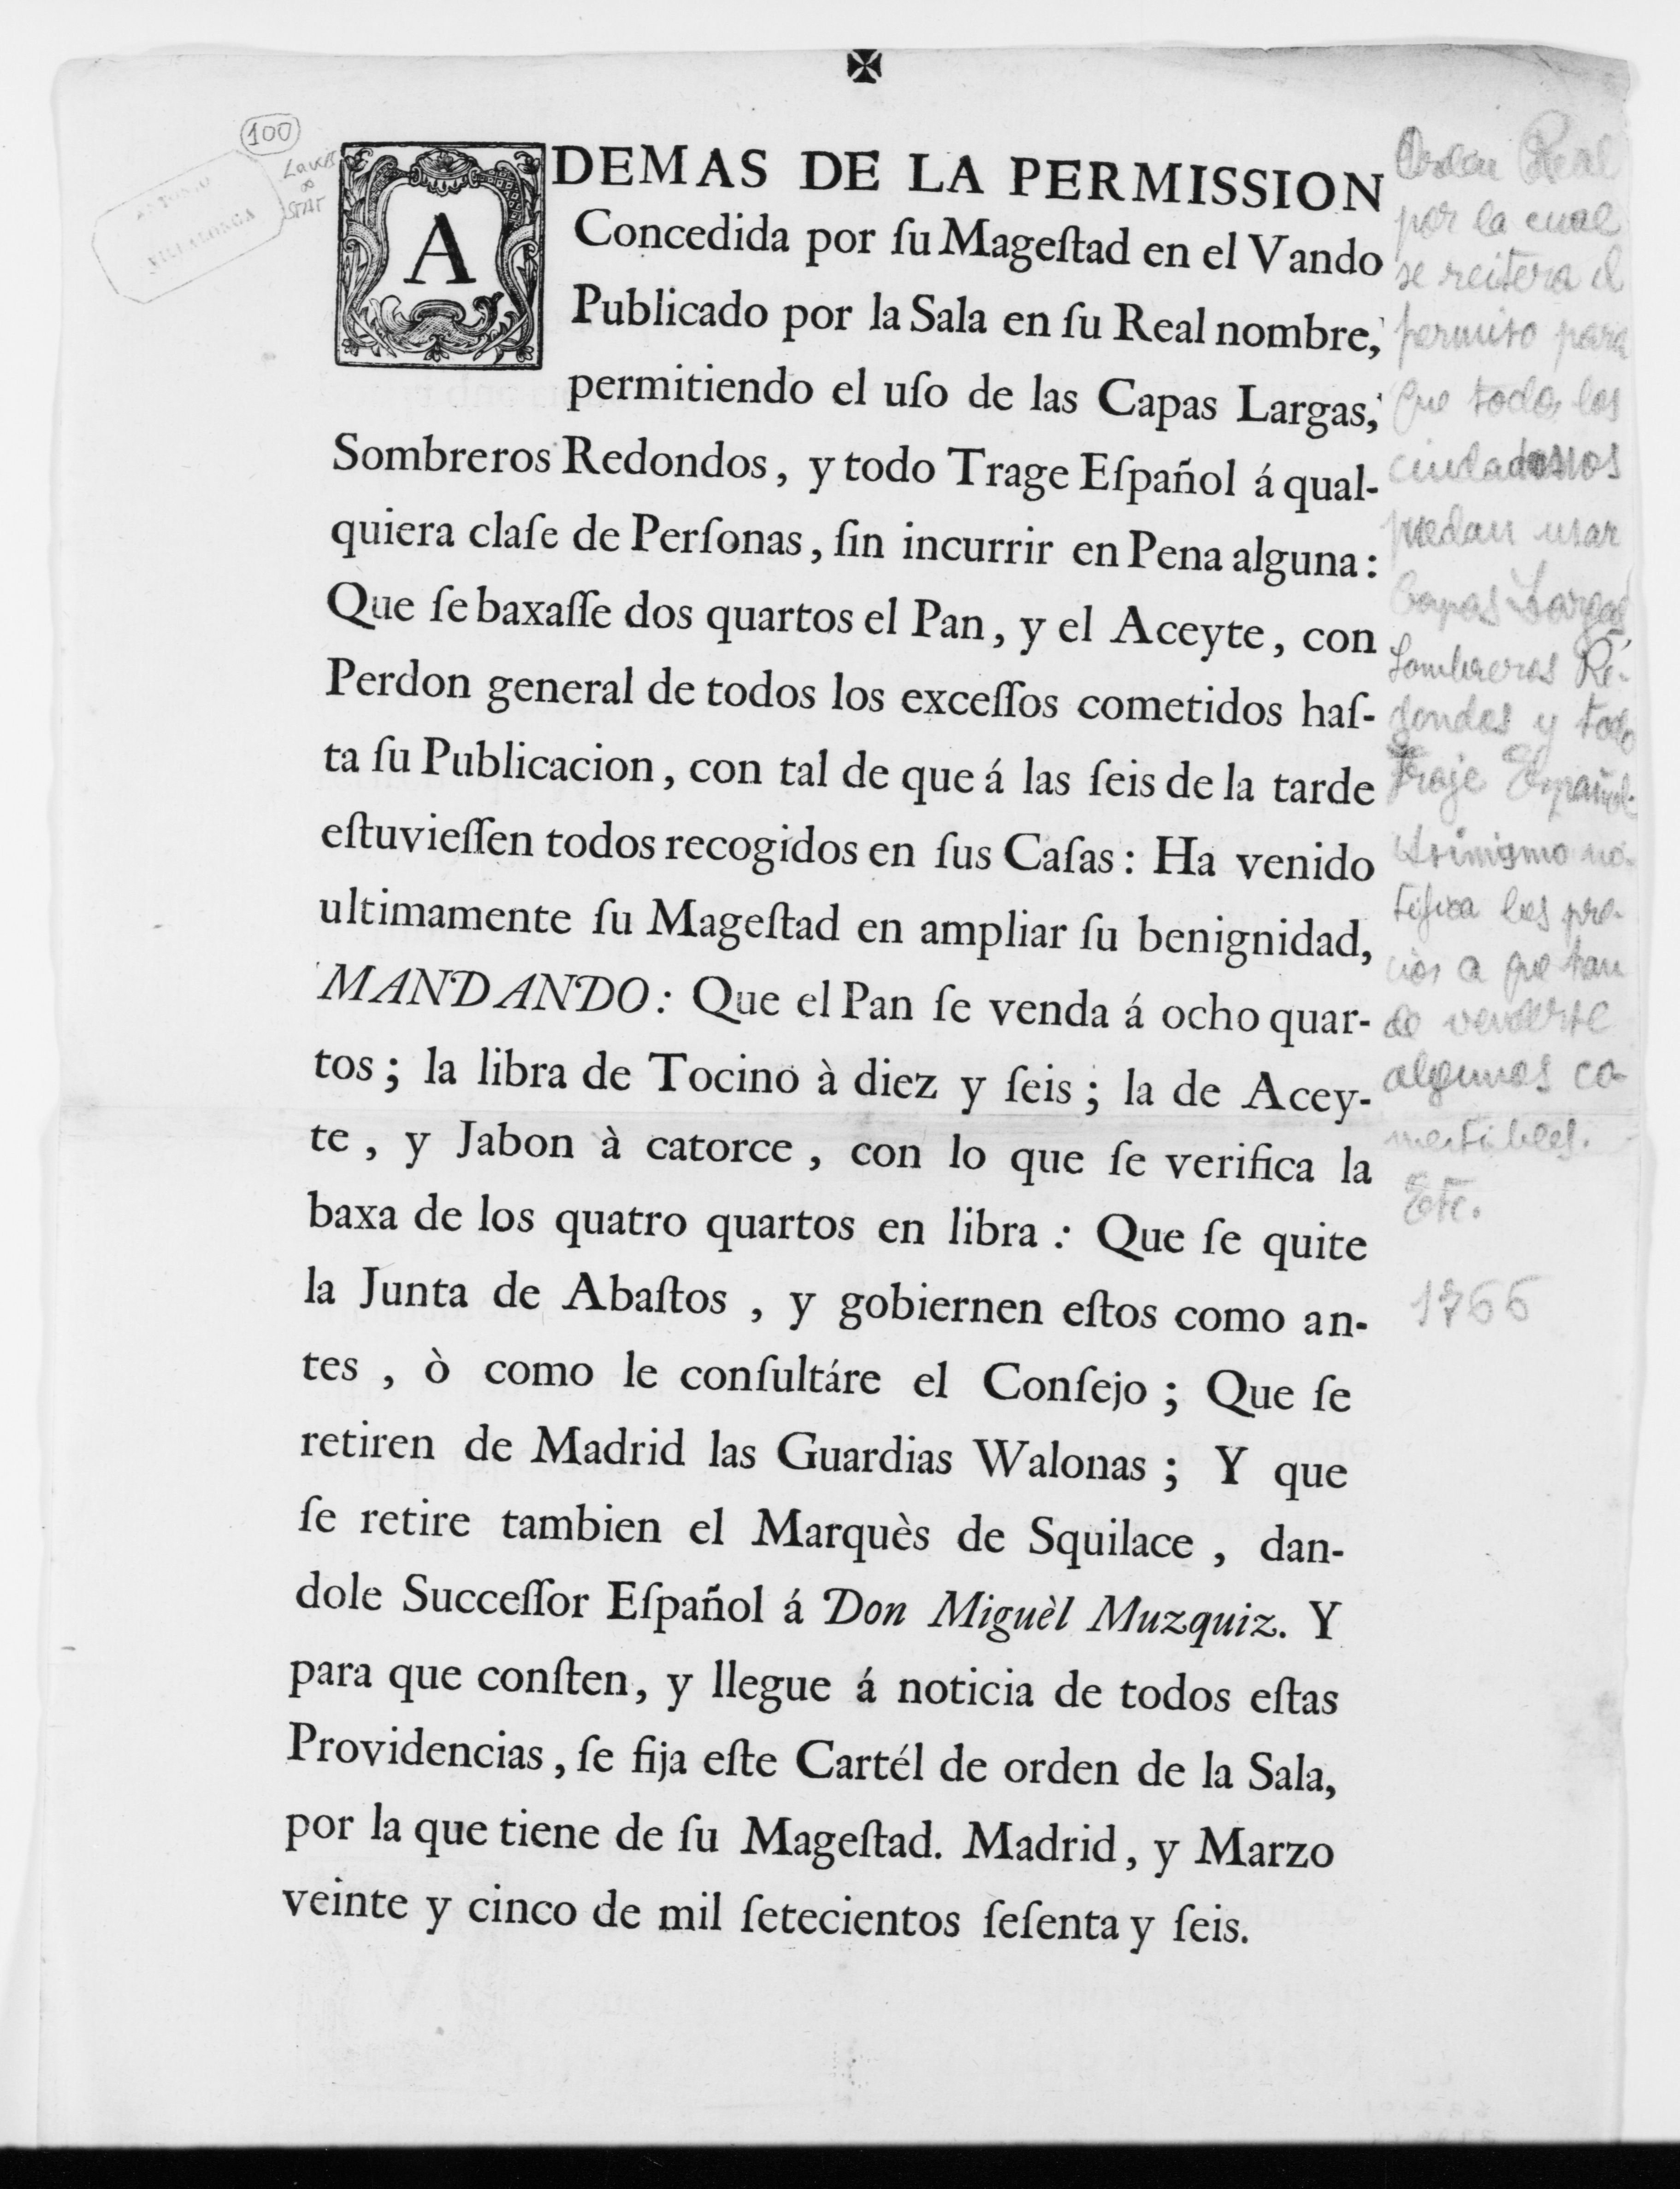 100
ANTONIO
VILLALONGA
ADEMAS DE LA PERMISSION
Concedida por ſu Mageſtad en el Vando
Publicado por la Sala en ſu Real nombre,
permitiendo el uſo de las Capas Largas,
Sombreros Redondos, y todo Trage Eſpañol á qual-
quiera claſe de Perſonas, ſin incurrir en Pena alguna:
Que ſe baxaſſe dos quartos el Pan, y el Aceyte, con
Perdon general de todos los exceſſos cometidos haſ-
ta ſu Publicacion, con tal de que á las ſeis de la tarde
eſtuvieſſen todos recogidos en ſus Caſas: Ha venido
ultimamente ſu Mageſtad en ampliar ſu benignidad,
MANDANDO: Que el Pan ſe venda á ocho quar-
tos; la libra de Tocino à diez y ſeis; la de Acey-
te, y Jabon à catorce, con lo que ſe verifica la
baxa de los quatro quartos en libra: Que ſe quite
la Junta de Abaſtos, y gobiernen eſtos como an-
tes, ò como le conſultáre el Conſejo; Que ſe
retiren de Madrid las Guardias Walonas; Y que
ſe retire tambien el Marquès de Squilace, dan-
dole Succeſſor Eſpañol á Don Miguèl Muzquiz. Y
para que conſten, y llegue á noticia de todos eſtas
Providencias, ſe fija eſte Cartél de orden de la Sala,
por la que tiene de ſu Mageſtad. Madrid, y Marzo
veinte y cinco de mil ſetecientos ſeſenta y ſeis.
Orden Real
por la cual
se reitera el
permiso para
que todos los
ciudadanos
puedan usar
Capas Largas
Sombreros Re-
dondos y todo
Traje Español.
Asimismo no-
tifica los pre-
cios a que han
de venderse
algunos co-
mestibles.
Etc.
1766